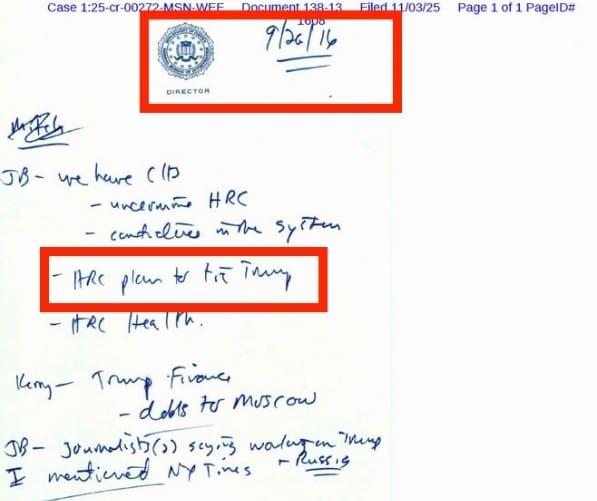 Case 1:25-cr-00272-MSN-WEF Document 138-13 Filed 11/03/25 Page 1 of 1 PageID#
1608
9/26/16
DIRECTOR
JB - we have
- undermine HRC
- in the system
- HRC plan to tie Trump
- HRC Health.
- Trump Finance
- debts to Moscow
JB - Journalists(2) saying working on Trump
+ Russia
I mentioned NY Times